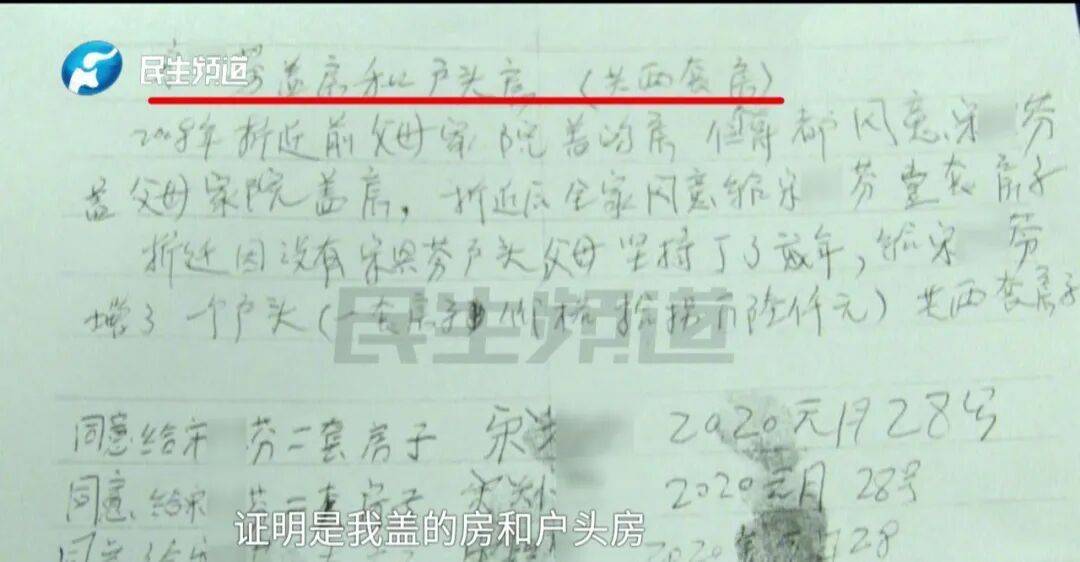 民生频道
芬盖房和户头房（共两套房）
2008年折迁前父母家院盖的房 都同意宋 芬
盖父母家院盖房，折迁后全家同意给宋 芬壹套房子
折迁因没有宋 芬户头父母坚持了3 年，给宋 芬
增了一个户头（一套房子 价格 仟元）共两套房子
民生频道
同意给宋 芬二套房子 宋 2020元月28号
同意给宋 芬二套房子 宋 2020元月28号
同意给宋 2020 月28
证明是我盖的房和户头房